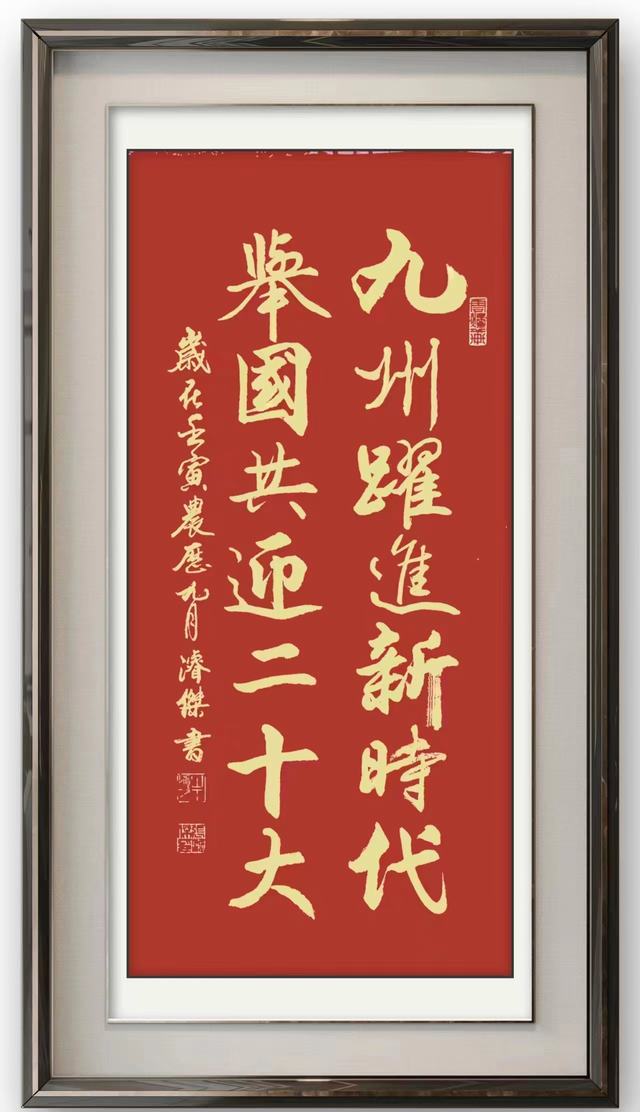 九州躍進新時代
舉國共迎二十大
歲在壬寅農歷九月濬傑書